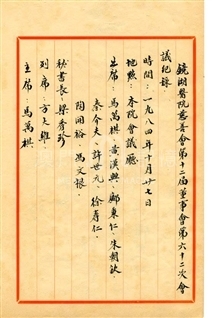 鏡湖醫院慈善會第十二屆董事會第六十二次會
議紀錄
時間：一九八四年十月廿七日
地點：本院會議廳
主席：馬萬祺、黃漢興、鄺秉仁、朱朝欽
秦今夫、許世元、徐壽仁、
陶開裕、馮文根、
秘書長：梁秀珍
列席：方大雄
主席：馬萬祺